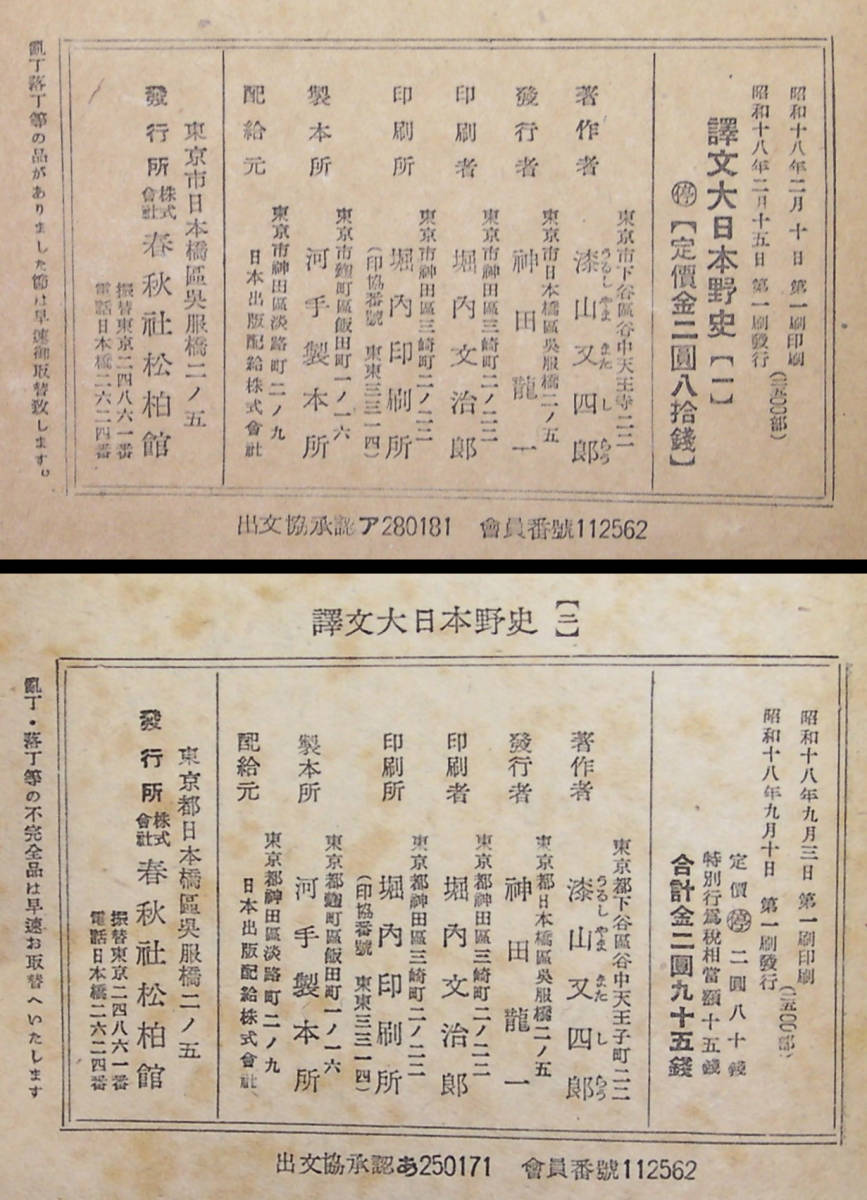 昭和十八年二月十日第一刷印刷
昭和十八年二月十五日第一刷發行
(二五〇〇部)
譯文大日本野史【一】
㊡【定價金二圓八拾錢】
東京市下谷區谷中天王寺二二
著作者 漆山又四郎
うるしやままたしらう
東京市日本橋區吳服橋二ノ五
發行者 神田龍一
東京市神田區三崎町二ノ二二
印刷者 堀內文治郎
東京市神田區三崎町二ノ二二
印刷所 堀內印刷所
(印協番號 東東三三一四)
東京市麴町區飯田町一ノ一六
製本所 河手製本所
東京市神田區淡路町二ノ九
配給元 日本出版配給株式會社
東京市日本橋區吳服橋二ノ五
發行所 株式會社 春秋社松柏館
振替東京二四八六一番
電話日本橋二六二四番
亂丁落丁等の品がありました節は早速御取替致します。
出文協承認ア280181 會員番號112562
譯文大日本野史【二】
昭和十八年九月三日第一刷印刷
昭和十八年九月十日第一刷發行
(二五〇〇部)
定價 停 二圓八十錢
特別行爲稅相當額十五錢
合計金二圓九十五錢
東京都下谷區谷中天王子町二二
著作者 漆山又四郎
うるしやままたしらう
東京都日本橋區吳服橋二ノ五
發行者 神田龍一
東京都神田區三崎町二ノ二二
印刷者 堀內文治郎
東京都神田區三崎町二ノ二二
印刷所 堀內印刷所
(印協番號 東東三三一四)
東京都麴町區飯田町一ノ一六
製本所 河手製本所
東京都神田區淡路町二ノ九
配給元 日本出版配給株式會社
東京都日本橋區吳服橋二ノ五
發行所 株式會社 春秋社松柏館
振替東京二四八六一番
電話日本橋二六二四番
亂丁・落丁等の不完全品は早速お取替へいたします
出文協承認あ250171 會員番號112562